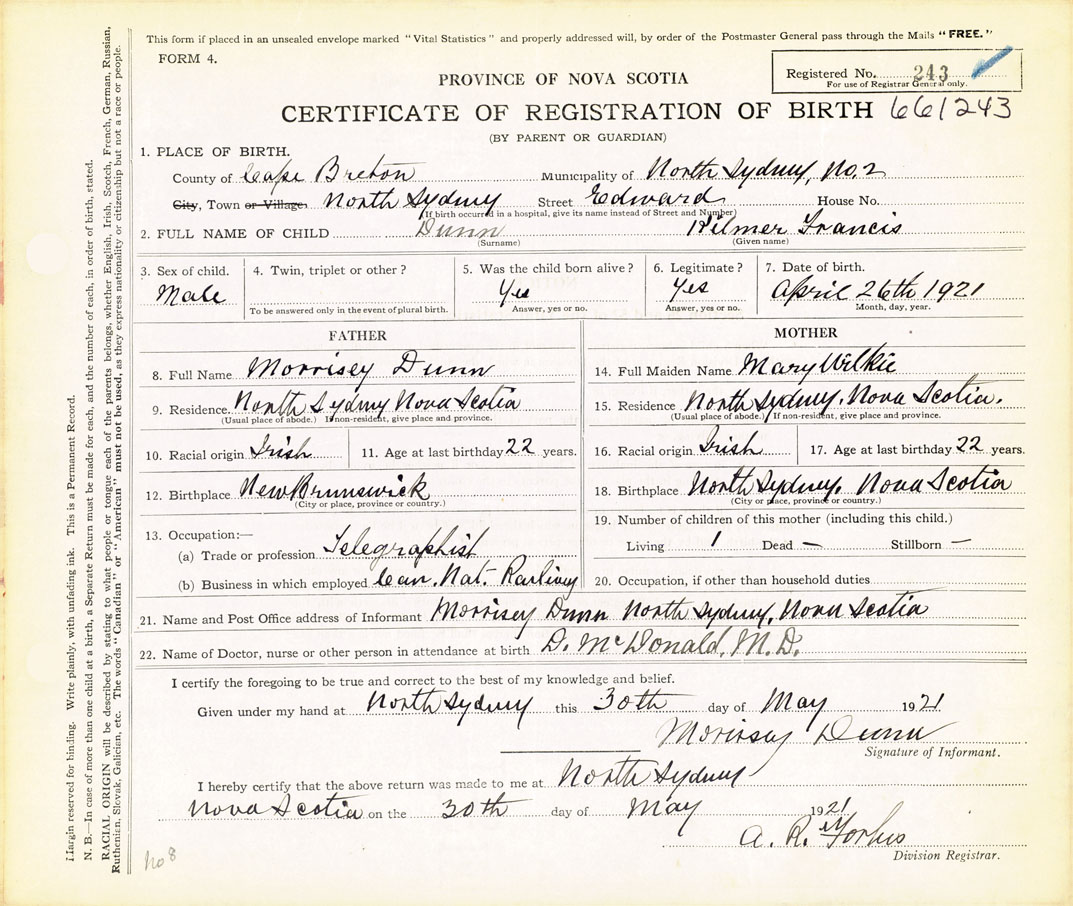 This form if placed in an unsealed envelope marked "Vital Statistics" and properly addressed will, by order of the Postmaster General pass through the Mails "FREE."
FORM 4.
Registered No. 243
For use of Registrar General only.
PROVINCE OF NOVA SCOTIA
CERTIFICATE OF REGISTRATION OF BIRTH 661243
(BY PARENT OR GUARDIAN)
1. PLACE OF BIRTH.
County of Cape Breton Municipality of North Sydney, No. 2
City, Town or Village North Sydney Street Edward House No.
(If birth occurred in a hospital, give its name instead of Street and Number)
2. FULL NAME OF CHILD Dunn Hilmer Francis
(Surname) (Given name)
3. Sex of child. 4. Twin, triplet or other? 5. Was the child born alive? 6. Legitimate? 7. Date of birth.
Male Yes Yes April 26th 1921
To be answered only in the event of plural birth. Answer, yes or no. Answer, yes or no. Month, day, year.
FATHER
8. Full Name Morrisey Dunn
9. Residence North Sydney Nova Scotia
(Usual place of abode.) If non-resident, give place and province.
10. Racial origin Irish 11. Age at last birthday 22 years.
12. Birthplace New Brunswick
(City or place, province or country.)
13. Occupation:—
(a) Trade or profession Telegraphist
(b) Business in which employed Can. Nat. Railway
MOTHER
14. Full Maiden Name Mary Wilkie
15. Residence North Sydney. Nova Scotia.
(Usual place of abode.) If non-resident, give place and province.
16. Racial origin Irish 17. Age at last birthday 22 years.
18. Birthplace North Sydney. Nova Scotia
(City or place, province or country.)
19. Number of children of this mother (including this child.)
Living 1 Dead — Stillborn —
20. Occupation, if other than household duties
21. Name and Post Office address of Informant Morrisey Dunn North Sydney, Nova Scotia
22. Name of Doctor, nurse or other person in attendance at birth D. McDonald, M.D.
I certify the foregoing to be true and correct to the best of my knowledge and belief.
Given under my hand at North Sydney this 30th day of May 1921
Morrisey Dunn
Signature of Informant.
I hereby certify that the above return was made to me at North Sydney
Nova Scotia on the 30th day of May 1921
A. R. Forbes
Division Registrar.
No 8
Margin reserved for binding. Write plainly, with unfading ink. This is a Permanent Record.
N. B.—In case of more than one child at a birth, a Separate Return must be made for each, and the number of each, in order of birth, stated.
RACIAL ORIGIN will be described by stating to what people or tongue each of the parents belongs, whether English, Irish, Scotch, French, German, Russian,
Ruthenian, Slovak, Galician, etc. The words "Canadian" or "American" must not be used, as they express nationality or citizenship but not a race or people.